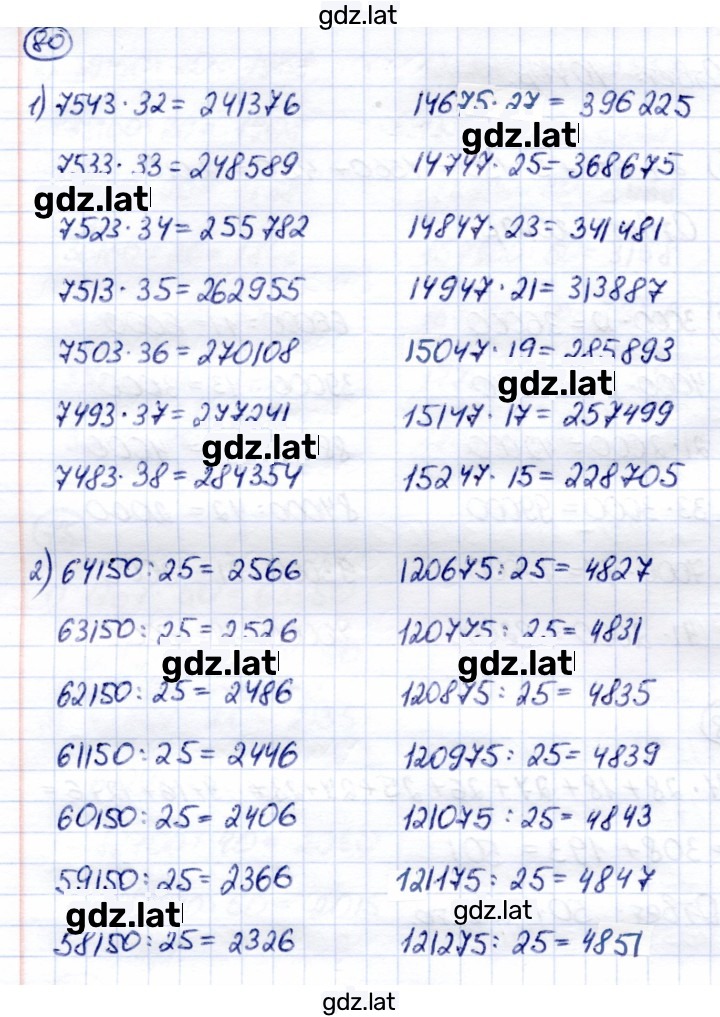 gdz.lat
80
1) 7543 · 32 = 241376
14675 · 27 = 396225
gdz.lat
7533 · 33 = 248589
14747 · 25 = 368675
gdz.lat
7523 · 34 = 255782
14847 · 23 = 341481
7513 · 35 = 262955
14947 · 21 = 313887
7503 · 36 = 270108
15047 · 19 = 285893
gdz.lat
7493 · 37 = 277241
15147 · 17 = 257499
gdz.lat
7483 · 38 = 284354
15247 · 15 = 228705
2) 64150 : 25 = 2566
120675 : 25 = 4827
63150 : 25 = 2526
120775 : 25 = 4831
gdz.lat
gdz.lat
62150 : 25 = 2486
120875 : 25 = 4835
61150 : 25 = 2446
120975 : 25 = 4839
60150 : 25 = 2406
121075 : 25 = 4843
59150 : 25 = 2366
121175 : 25 = 4847
gdz.lat
gdz.lat
58150 : 25 = 2326
121275 : 25 = 4851
gdz.lat